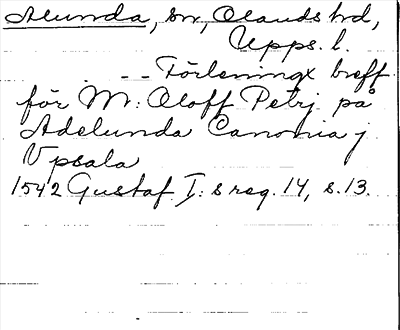 Alunda, sn, Olands hd,
Upps. l.
- - Förleningx breff
för M: Oloff Petrj på
Adelunda Canonia j
Vpsala
1542 Gustaf I: s reg. 14, s. 13.